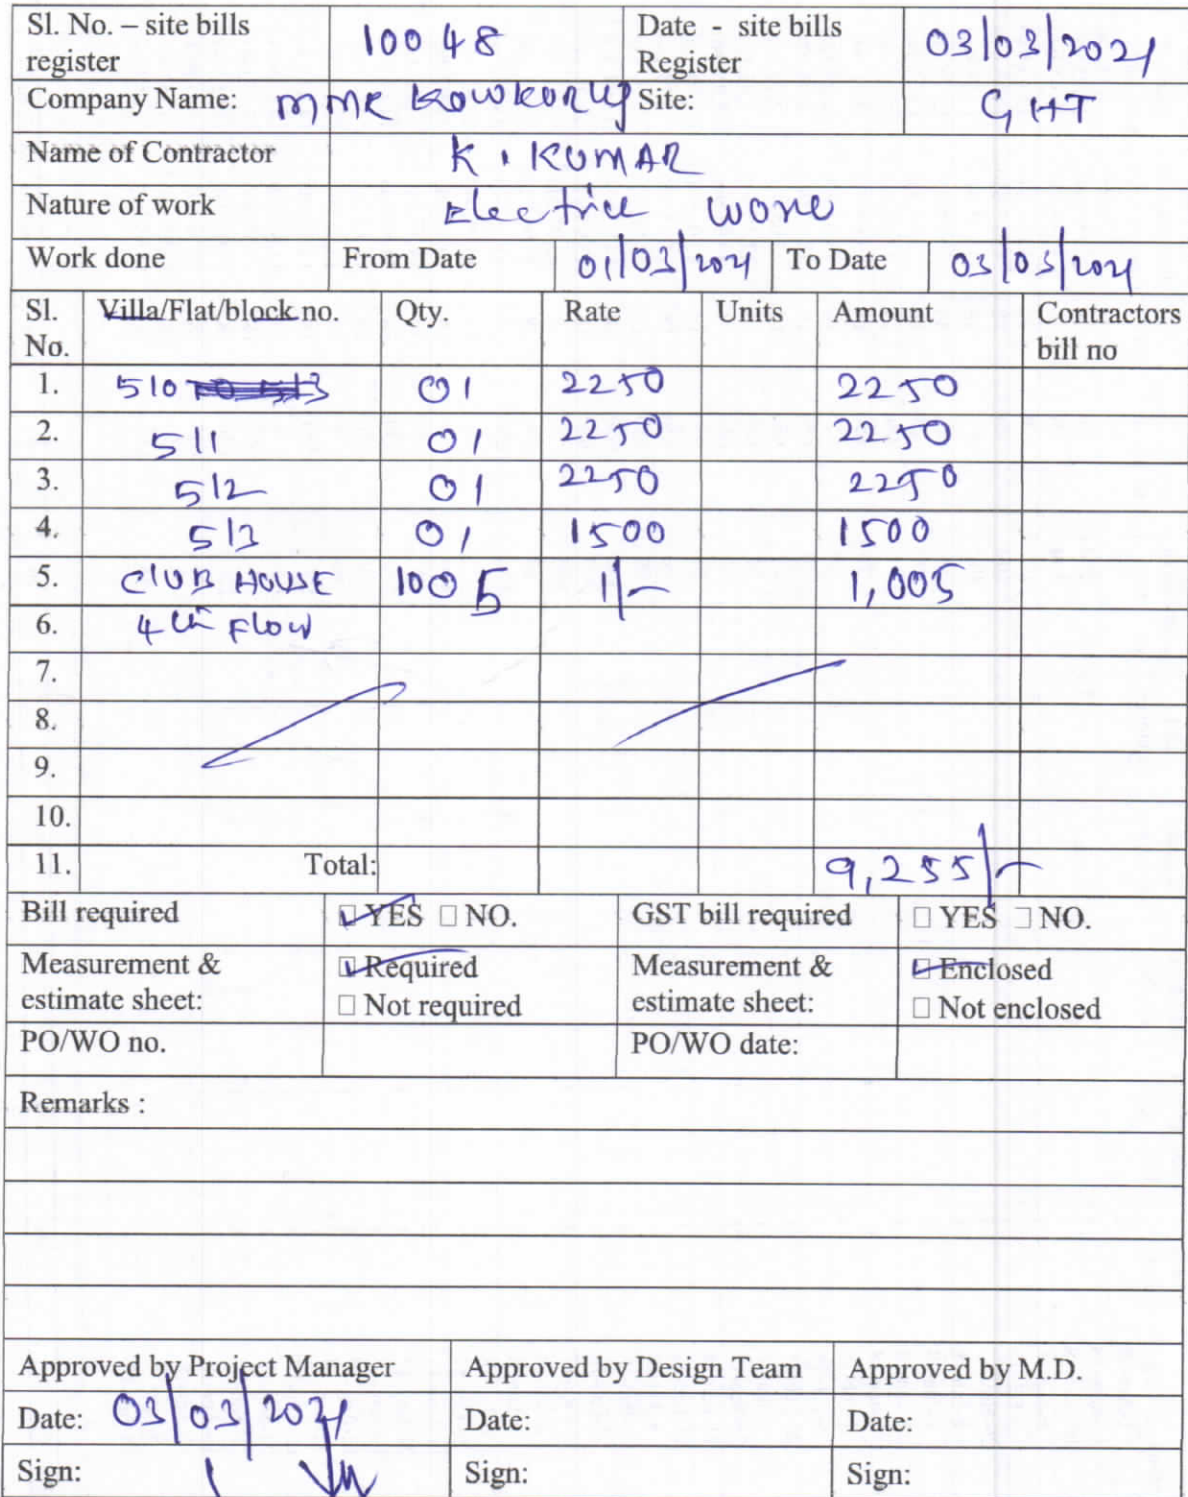 Sl. No. – site bills register 10048 Date - site bills Register 03/03/2021
Company Name: MMR KOWKURUJ Site: GHT
Name of Contractor K. KUMAR
Nature of work Electrice work
Work done From Date 01/03/2021 To Date 03/03/2021
Sl. No. Villa/Flat/block no. Qty. Rate Units Amount Contractors bill no
1. 510 01 2250 2250
2. 511 01 2250 2250
3. 512 01 2250 2250
4. 513 01 1500 1500
5. CLUB HOUSE 1005 1/- 1,005
6. 4th Flow
7.
8.
9.
10.
11. Total: 9,255/-
Bill required YES NO. GST bill required YES NO.
Measurement & estimate sheet: Required Not required Measurement & estimate sheet: Enclosed Not enclosed
PO/WO no. PO/WO date:
Remarks :
Approved by Project Manager Approved by Design Team Approved by M.D.
Date: 03/03/2021 Date: Date:
Sign: Sign: Sign: